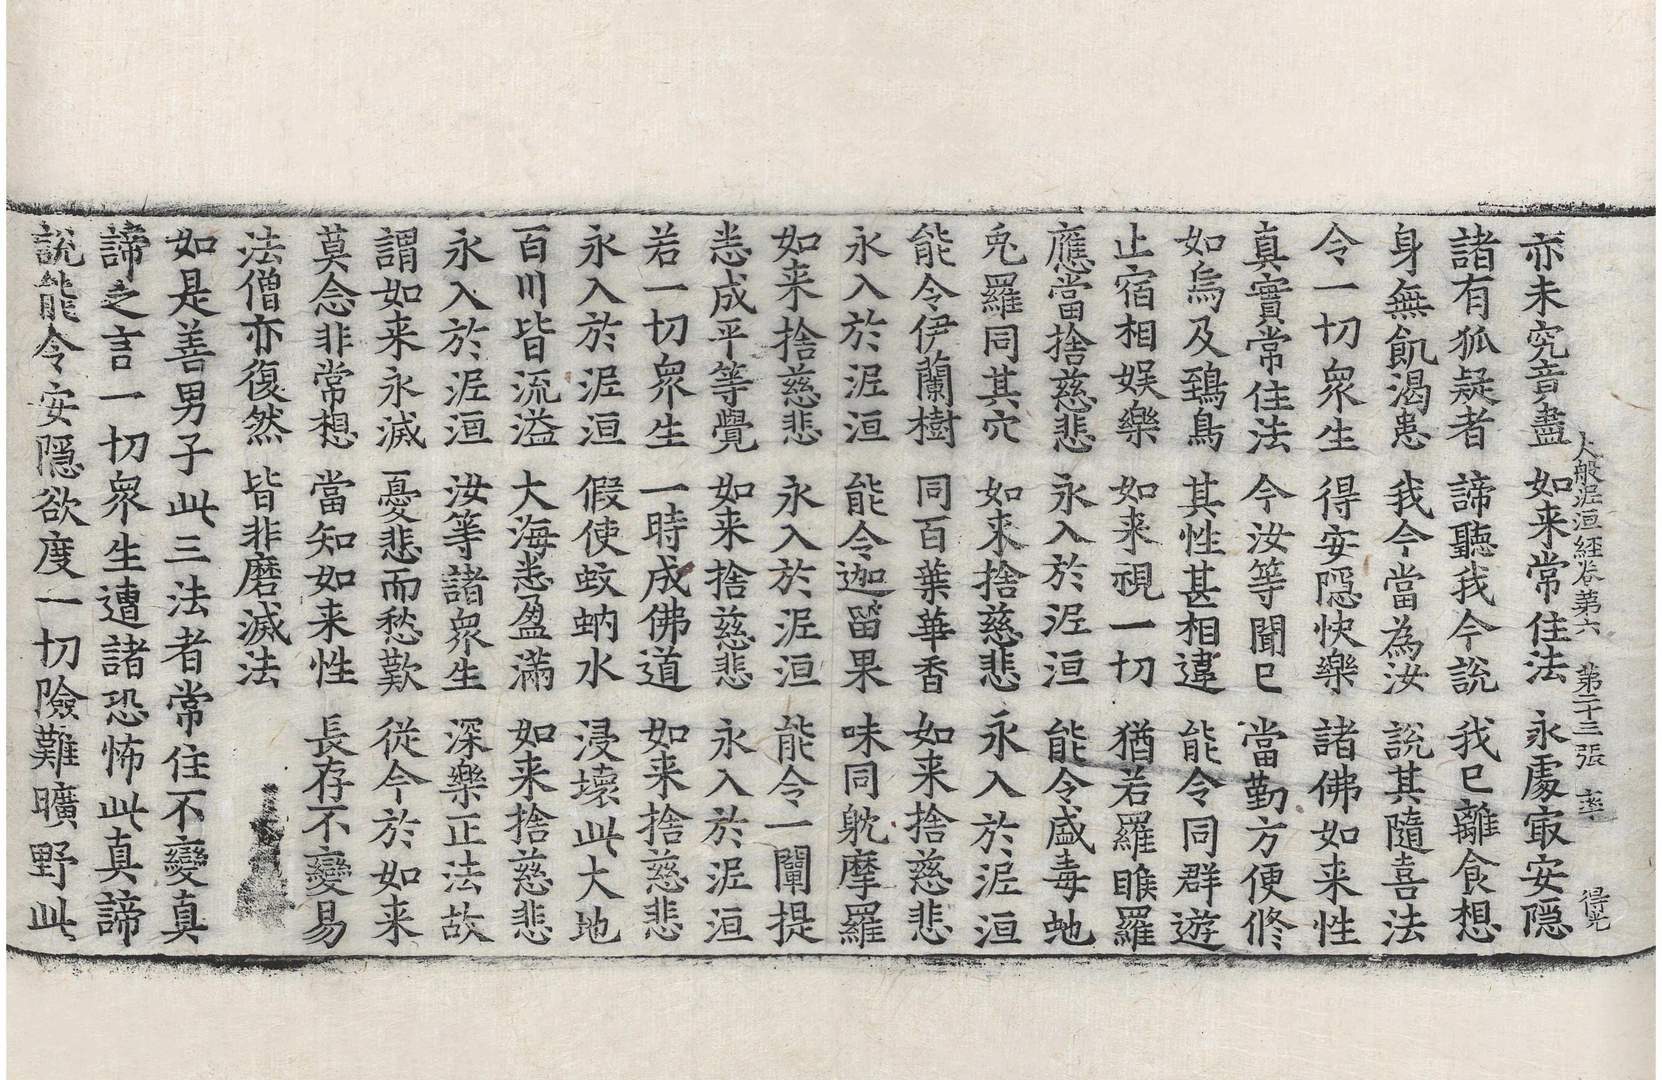 大般泥洹經卷第六　第二十三張　率　得光
亦未究竟盡　如来常住法　永處㝡安隱
諸有狐疑者　諦聽我今說　我已離食想
身無飢渴患　我今當為汝　說其隨喜法
令一切衆生　得安隱快樂　諸佛如来性
真實常住法　今汝等聞已　當勤方便修
如烏及鵄鳥　其性甚相違　能令同群遊
止宿相娛樂　如来視一切　猶若羅睺羅
應當捨慈悲　永入於泥洹　能令虺毒虵
兎羅同其穴　如来捨慈悲　永入於泥洹
能令伊蘭樹　同百葉華香　如来捨慈悲
永入於泥洹　能令迦留果　味同躭摩羅
如来捨慈悲　永入於泥洹　能令一闡提
悉成平等覺　如来捨慈悲　永入於泥洹
若一切衆生　一時成佛道　如来捨慈悲
永入於泥洹　假使蚊蚋水　浸壞此大地
百川皆流溢　大海悉盈滿　如来捨慈悲
永入於泥洹　汝等諸衆生　深樂正法故
謂如来永滅　憂悲而愁歎　從今於如来
莫念非常想　當知如来性　長存不變易
法僧亦復然　皆非磨滅法
如是善男子此三法者常住不變真
諦之言一切衆生遭諸恐怖此真諦
說能令安隱欲度一切險難曠野此